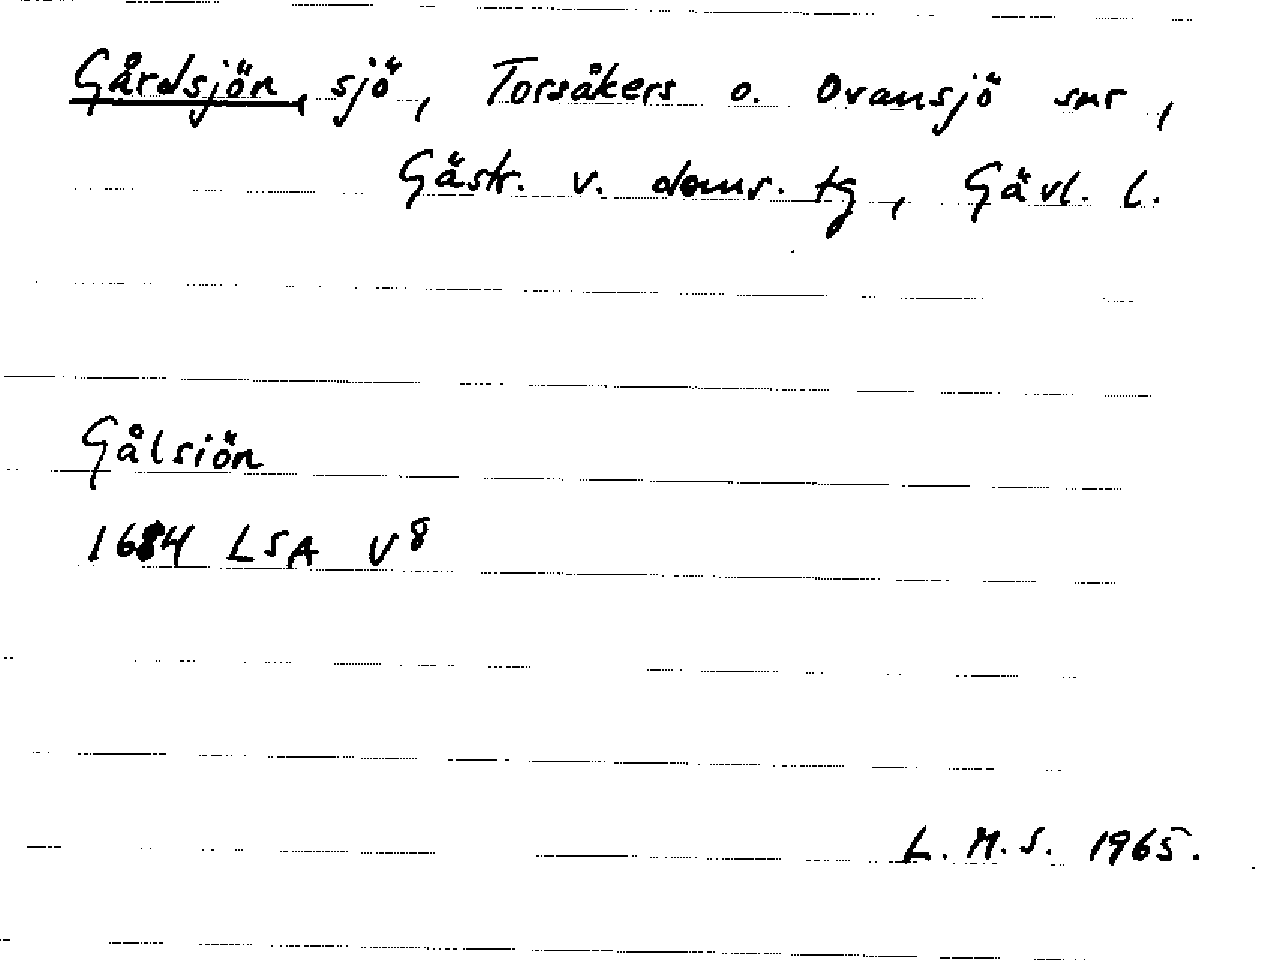 Gårdsjön, sjö, Torsåkers o. Ovansjö snr,
Gästr. v. doms. tg, Gävl. l.
Gålsiön
1684 LSA V 8
L. M. S. 1965.